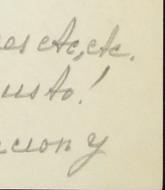 es etc, etc.
usto!
cion y